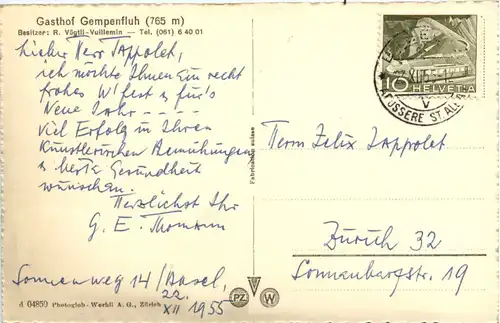 Gasthof Gempenfluh (765 m)
Besitzer: R. Vögtli-Vuillemin — Tel. (061) 6 40 01
Lieber Herr Tappolet,
ich möchte Ihnen ein recht
frohes W'fest u für's
Neue Jahr - - - -
viel Erfolg in Ihren
Künstlerischen Bemühungen
u beste Gesundheit
wünschen.
Herzlichst Ihr
G. E. Thomann
Sonnenweg 14/Basel,
22.
XII 1955
d 04859 Photoglob-Wehrli A. G., Zürich
PZ W
Fabrikation suisse
10 HELVETIA
ÄUSSERE ST. ALB
Herrn Felix Tappolet
Zürich 32
Sonnenbergstr. 19